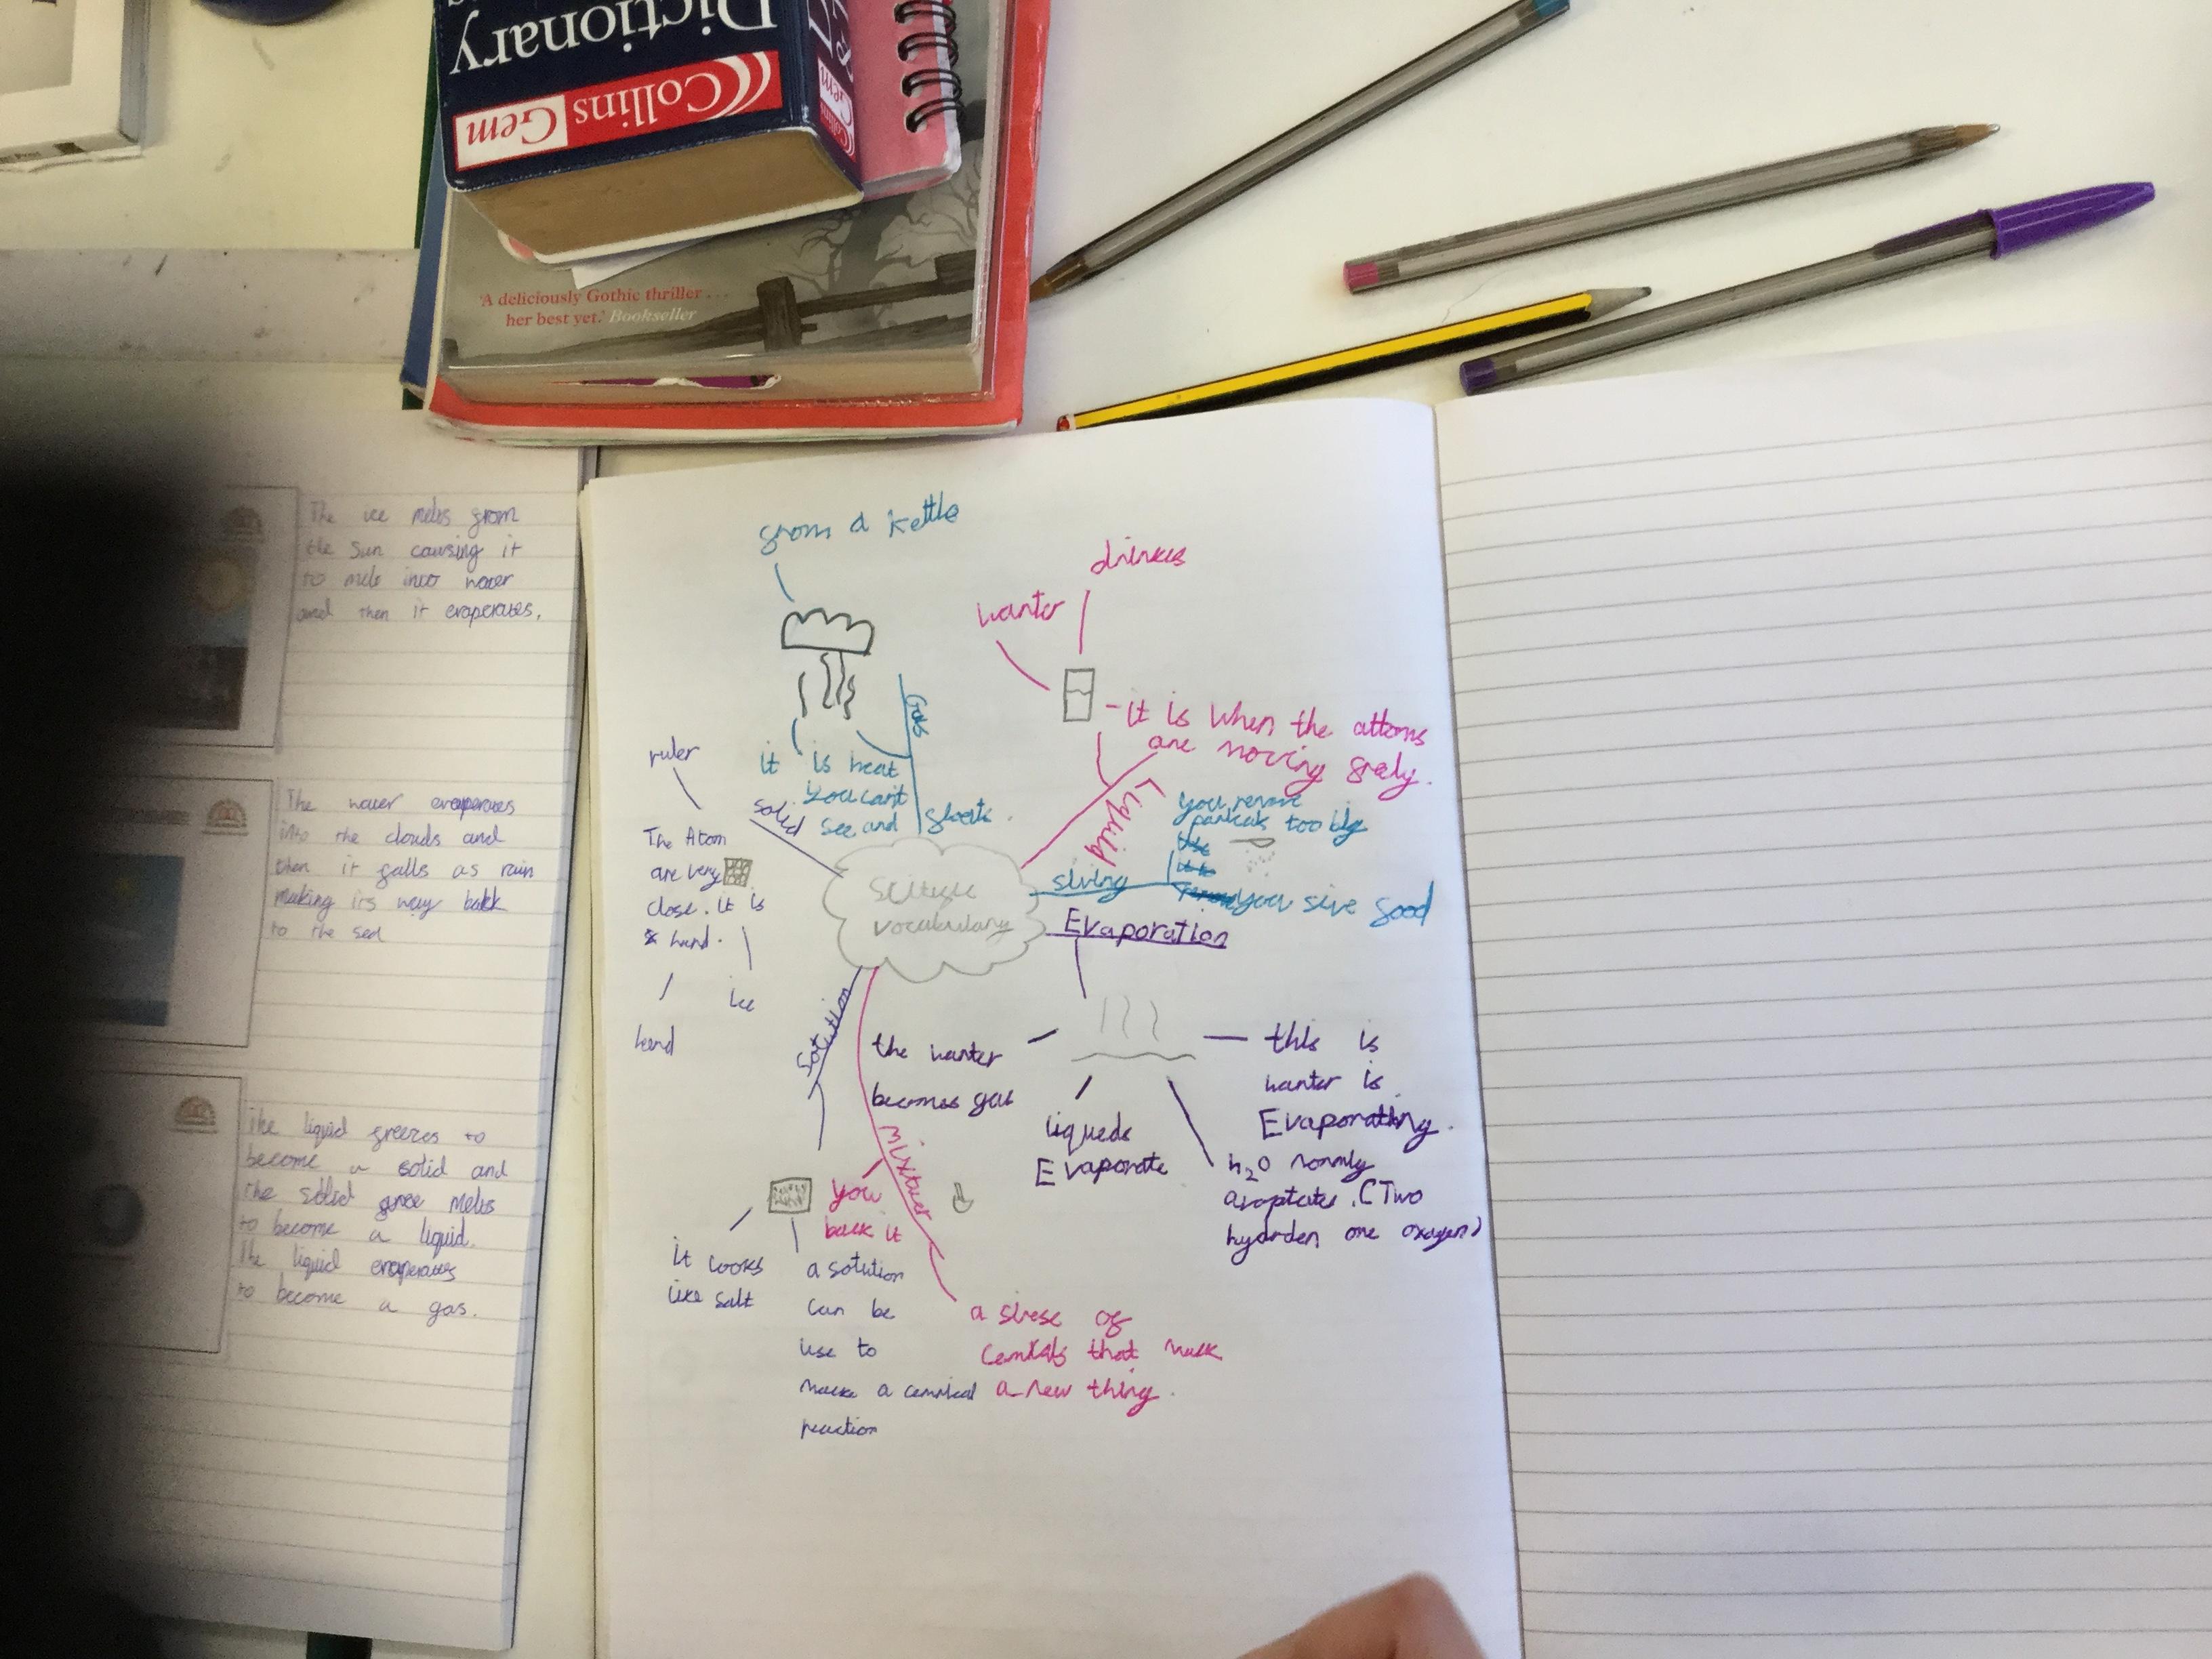 Dictionary
Collins
Gem
'A deliciously Gothic thriller . . .
her best yet.' Bookseller
The ice melts from
the sun causing it
to melt into water
and then it evaperates.
The water evaperates
into the clouds and
then it falls as rain
making its way back
to the sea
The liquid freezes to
become a solid and
the solid
melts
to become a liquid.
The liquid evaperates
to become a gas.
from a kettle
Gas
it is heat
you cant
see and floats.
drinks
wanter
it is when the attoms
are moving freely.
Liquid
ruler
solid
The Atom
are very
close. it is
hard.
ice
you remove
too big
siving
you sive food
vocabulary
Evaporation
the wanter
becomes gas
liqueds
Evaporate
this is
wanter is
Evaporating.
h₂O normly
(Two
hydrden one oxygen)
Solution
it looks
like salt
a solution
can be
use to
make a cemical
reaction
Mixtuer
you
a sirese of
that make
a new thing.